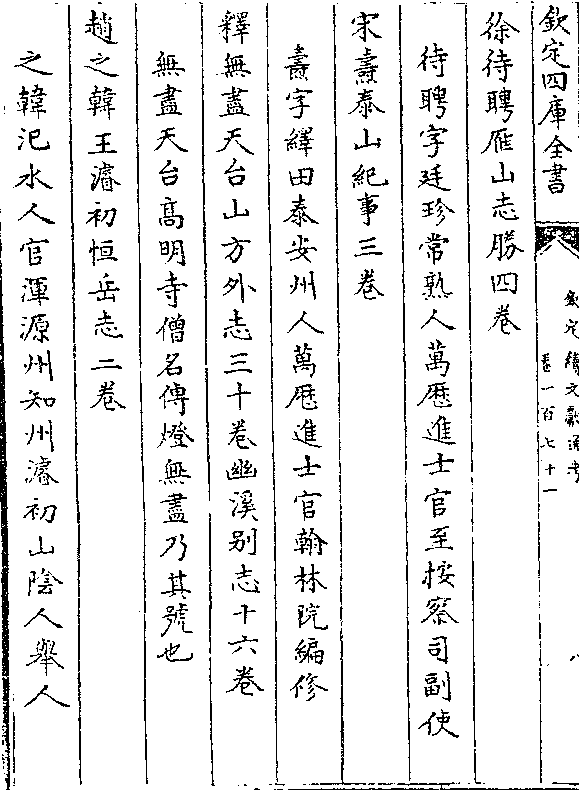 欽定四庫全書
欽定續文獻通考
卷一百七十一
八
徐待聘雁山志勝四卷
待聘字廷珍常熟人萬厯進士官至按察司副使
宋燾泰山紀事三卷
燾字繹田泰安州人萬厯進士官翰林院編修
釋無盡天台山方外志三十卷幽溪别志十六卷
無盡天台高明寺僧名傳燈無盡乃其號也
趙之韓王濬初恒岳志二卷
之韓汜水人官渾源州知州濬初山陰人舉人